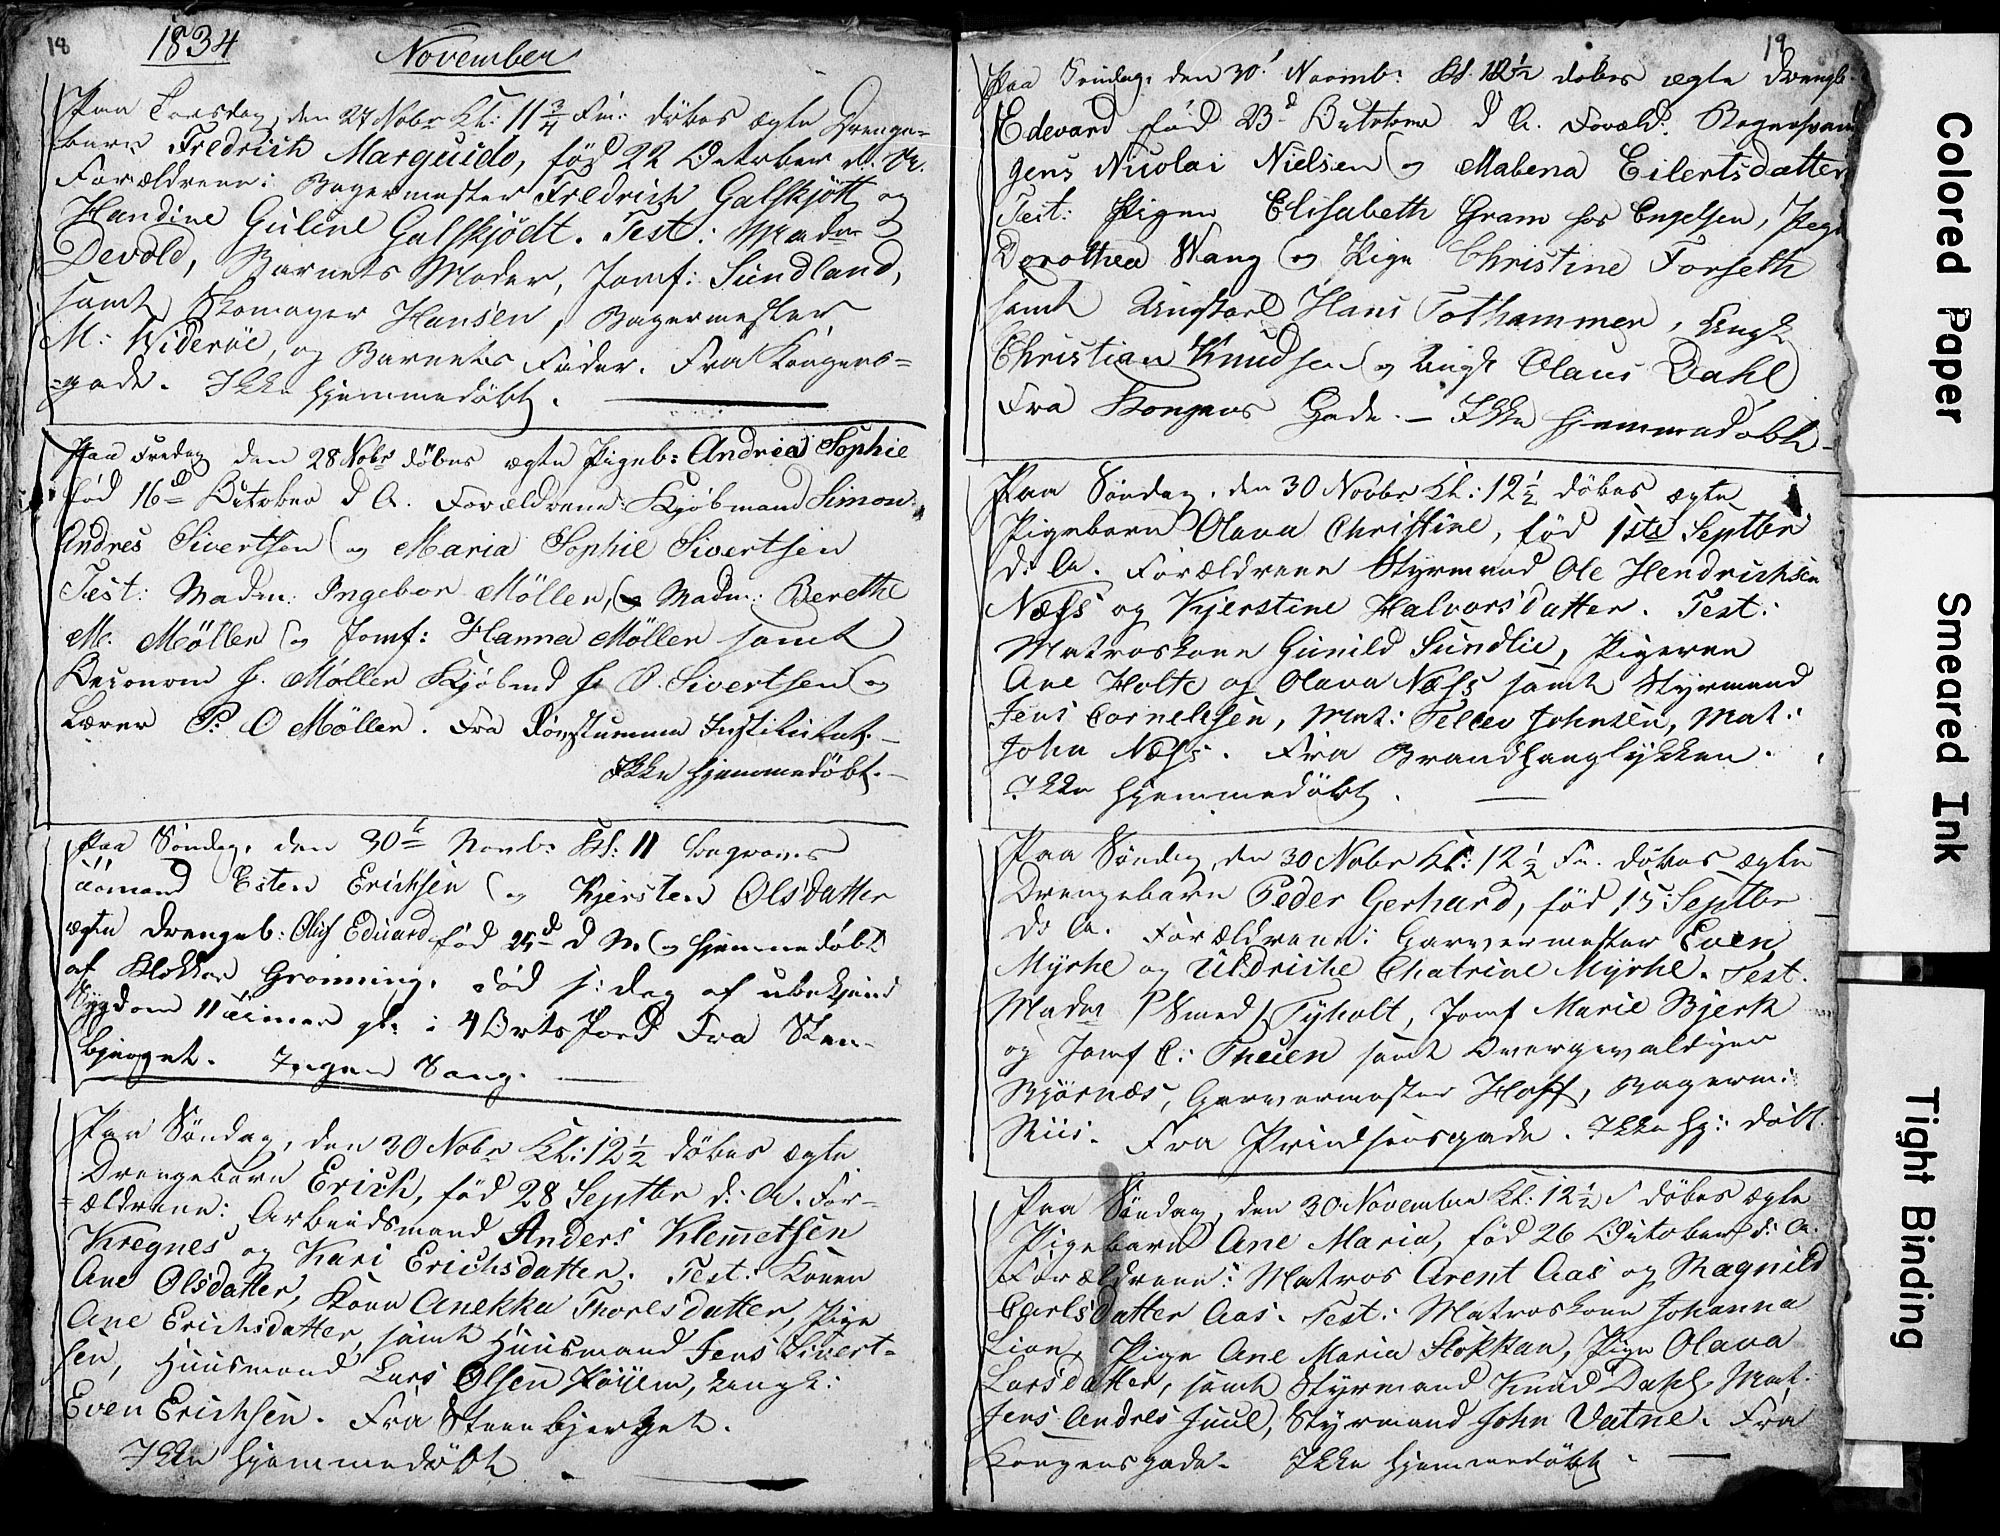 18
1834
November
Paa Torsdag, den 27 Nobr Kl: 11 3/4 Fm: döbes ægte Drenge-
barn Fredrich Marquido, fød 22 October d. A.
Forældrene: Bagermester Fredrich Galskjött og
Handine Guline Galskjödt. Test: Madm
Devold, Barnets Moder, Jomf: Sundland,
samt Skomager Hansen, Bagermester
M: Widerøe, og Barnets Fader. Fra Kongens-
-gade. Ikke hjemmedöbt.
Paa Fredag den 28 Nobr döbes ægte Pigeb: Andrea Sophie
fød 16d October d A. Forældrene: Kjöbmand Simon
Andres Sivertsen og Maria Sophie Sivertsen
Test: Madm: Ingebor Möller, Madm: Berethe
M. Møller og Jomf: Hanna Möller samt
Oeconom J. Møller Kjöbmd J. O. Sivertsen og
Lærer P. O Møller. Fra Døvstumme Institutet.
Ikke hjemmedöbt.
Paa Søndag, den 30te Novb: Kl: 11 begraves
Esten Erichsen og Kjersten Olsdatter
ægte Drengeb: Oluf Eduard fød 25d d M. og hjemmedöbt
af Klokker Grønning, død s: dag af ubekjend
Sygdom 11 timer gl: i 4 Orts Jord Fra Steen-
bjerget. Ingen Sang.
Paa Söndag, den 30 Nobr Kl: 12 1/2 döbes ægte
Drengebarn Erich, fød 28 Septbr d: A. For-
-ældrene: Arbeidsmand Anders Klemetsen
Kregnes og Kari Erichsdatter. Test: Konen
Ane Olsdatter, Kone Anekka Thoresdatter, Pige
Ane Erichsdatter, samt Huusmand Jens Sivert-
sen, Huusmand Lars Olsen Føyem, Ungk:
Even Erichsen. Fra Steenbjerget.
Ikke hjemmedöbt
19
Paa Søndag, den 30t Novmb: Kl. 12 1/2 döbes ægte Drengeb.
Edevard fød 23d October d A. Foræld:
Jens Nicolai Nielsen og Mabena Eilertsdatter
Test: Pigen Elisabeth Gram hos Engelsen, Pige
Dorothea Wang og Pige Christine Forseth
samt Ungkarl Hans Tothammer, Ungk
Christian Knudsen og Ungk Olaus Dahl
Fra Kongens Gade. – Ikke hjemmedöbt
Paa Söndag, den 30 Novbr Kl: 12 1/2 döbes ægte
Pigebarn Olava Christine, fød 1ste Septbr
d: A. Forældrene Styrmand Ole Hendrichsen
Næss og Kjerstine Halvorsdatter. Test:
Matroskone Gunild Sundlie, Pigerne
Ane Holte og Olava Næss samt Styrmand
Jens Cornelisen, Mat: Tellev Johnsen, Mat:
John Næss. Fra Brandhauglykken.
Ikke hjemmedöbt.
Paa Söndag, den 30 Nobr Kl: 12 1/2 Fm. döbes ægte
Drengebarn Peder Gerhard, fød 15 Septbr
d: A. Forældrene: Garvermester Even
Myrhe og Uldriche Chatrine Myrhe. Test.
Madm Smed Tyholt, Jomf Marie Bjerk
og Jomf C: Theien samt Overgevaldiger
Bjørnæs, Garvermester Hoff, Bagerm:
Riis. Fra Prindsensgade. Ikke hj: döbt.
Paa Söndag, den 30 November Kl: 12 1/2 döbes ægte
Pigebarn Ane Maria, fød 26 October d: A.
Forældrene: Matros Arent Aas og Magnild
Carlsdatter Aas. Test: Matroskone Johanna
Lian, Pige Ane Maria Stokkan, Pige Olava
Larsdatter, samt Styrmand Knud Dahl, Mat.
Jens Andres Juul, Styrmand John Vatne. Fra
Kongensgade. Ikke hjemmedöbt.
Colored Paper
Smeared Ink
Tight Binding